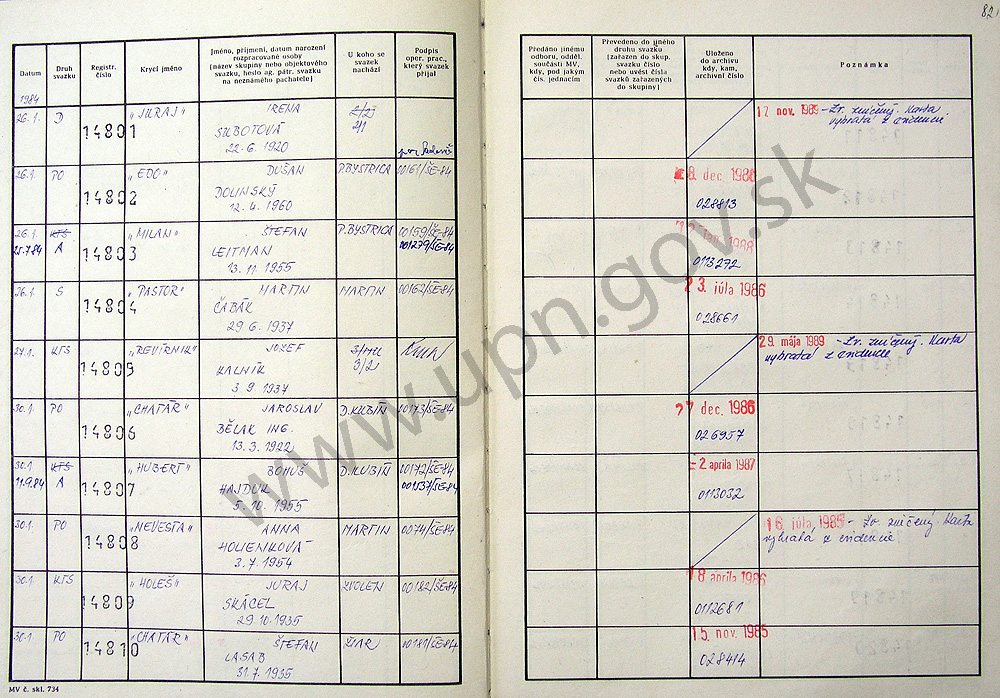 82
Datum
Druh svazku
Registr. číslo
Krycí jméno
Jméno, příjmení, datum narození rozpracované osoby (název skupiny nebo objektového svazku, heslo ag. pátr. svazku na neznámého pachatele)
U koho se svazek nachází
Podpis oper. prac., který svazek přijal
Předáno jinému odboru, odděl. součásti MV, kdy, pod jakým čís. jednacím
Převedeno do jiného druhu svazku (zařazen do skup. svazku číslo nebo uvést čísla svazků zařazených do skupiny)
Uloženo do archivu kdy, kam, archivní číslo
Poznámka
1984
26.1. D 14801 "JURAJ" IRENA
SUBOTOVÁ
22. 6. 1920
17 nov. 1989 - Zv. zničený. Karta
vybratá z evidencie
26.1. PO 14802 "EDO" DUŠAN P.BYSTRICA 00161/ŠE-84
DOLINSKÝ
12. 4. 1960
8 dec. 1986
028813
26.1. KTS 14803 "MILAN" ŠTEFAN P.BYSTRICA 00159/ŠE-84
25.7.84 A LEITMAN 001279/ŠE-84
13. 11. 1955
1988
0113272
26.1. S 14804 "PASTOR" MARTIN MARTIN 00162/ŠE-84
ČABÁK
29. 6. 1937
23. júla 1986
028661
27.1. KTS 14805 "REVÍRNIK" JOZEF
KALNÍK 3/2
3. 9. 1937
29. mája 1989 - Zv. zničený. Karta
vybratá z evidencie
30.1 PO 14806 "CHATÁR" JAROSLAV D.KUBÍN 00173/ŠE-84
BĚLAK ING.
13. 3. 1922
7 dec. 1986
026957
30.1 KTS 14807 "HUBERT" BOHUŠ D.KUBÍN 00172/ŠE-84
11.9.84 A HAJDUK 001537/ŠE-84
5. 10. 1955
2 apríla 1987
0113032
30.1. PO 14808 "NEVESTA" ANNA MARTIN 0074/ŠE-84
HOLIENKOVÁ
3. 7. 1954
16 júla, 1985 - Zv. zničený. Karta
vybratá z evidencie
30.1. KTS 14809 "HOLEŠ" JURAJ ZVOLEN 00182/ŠE-84
SKÁCEL
29. 10. 1935
18 apríla 1986
0112681
30.1 PO 14810 "CHATÁR" ŠTEFAN ŽIAR 00181/ŠE-84
LASAB
31. 7. 1935
15. nov. 1985
028414
MV č. skl. 734
www.upn.gov.sk